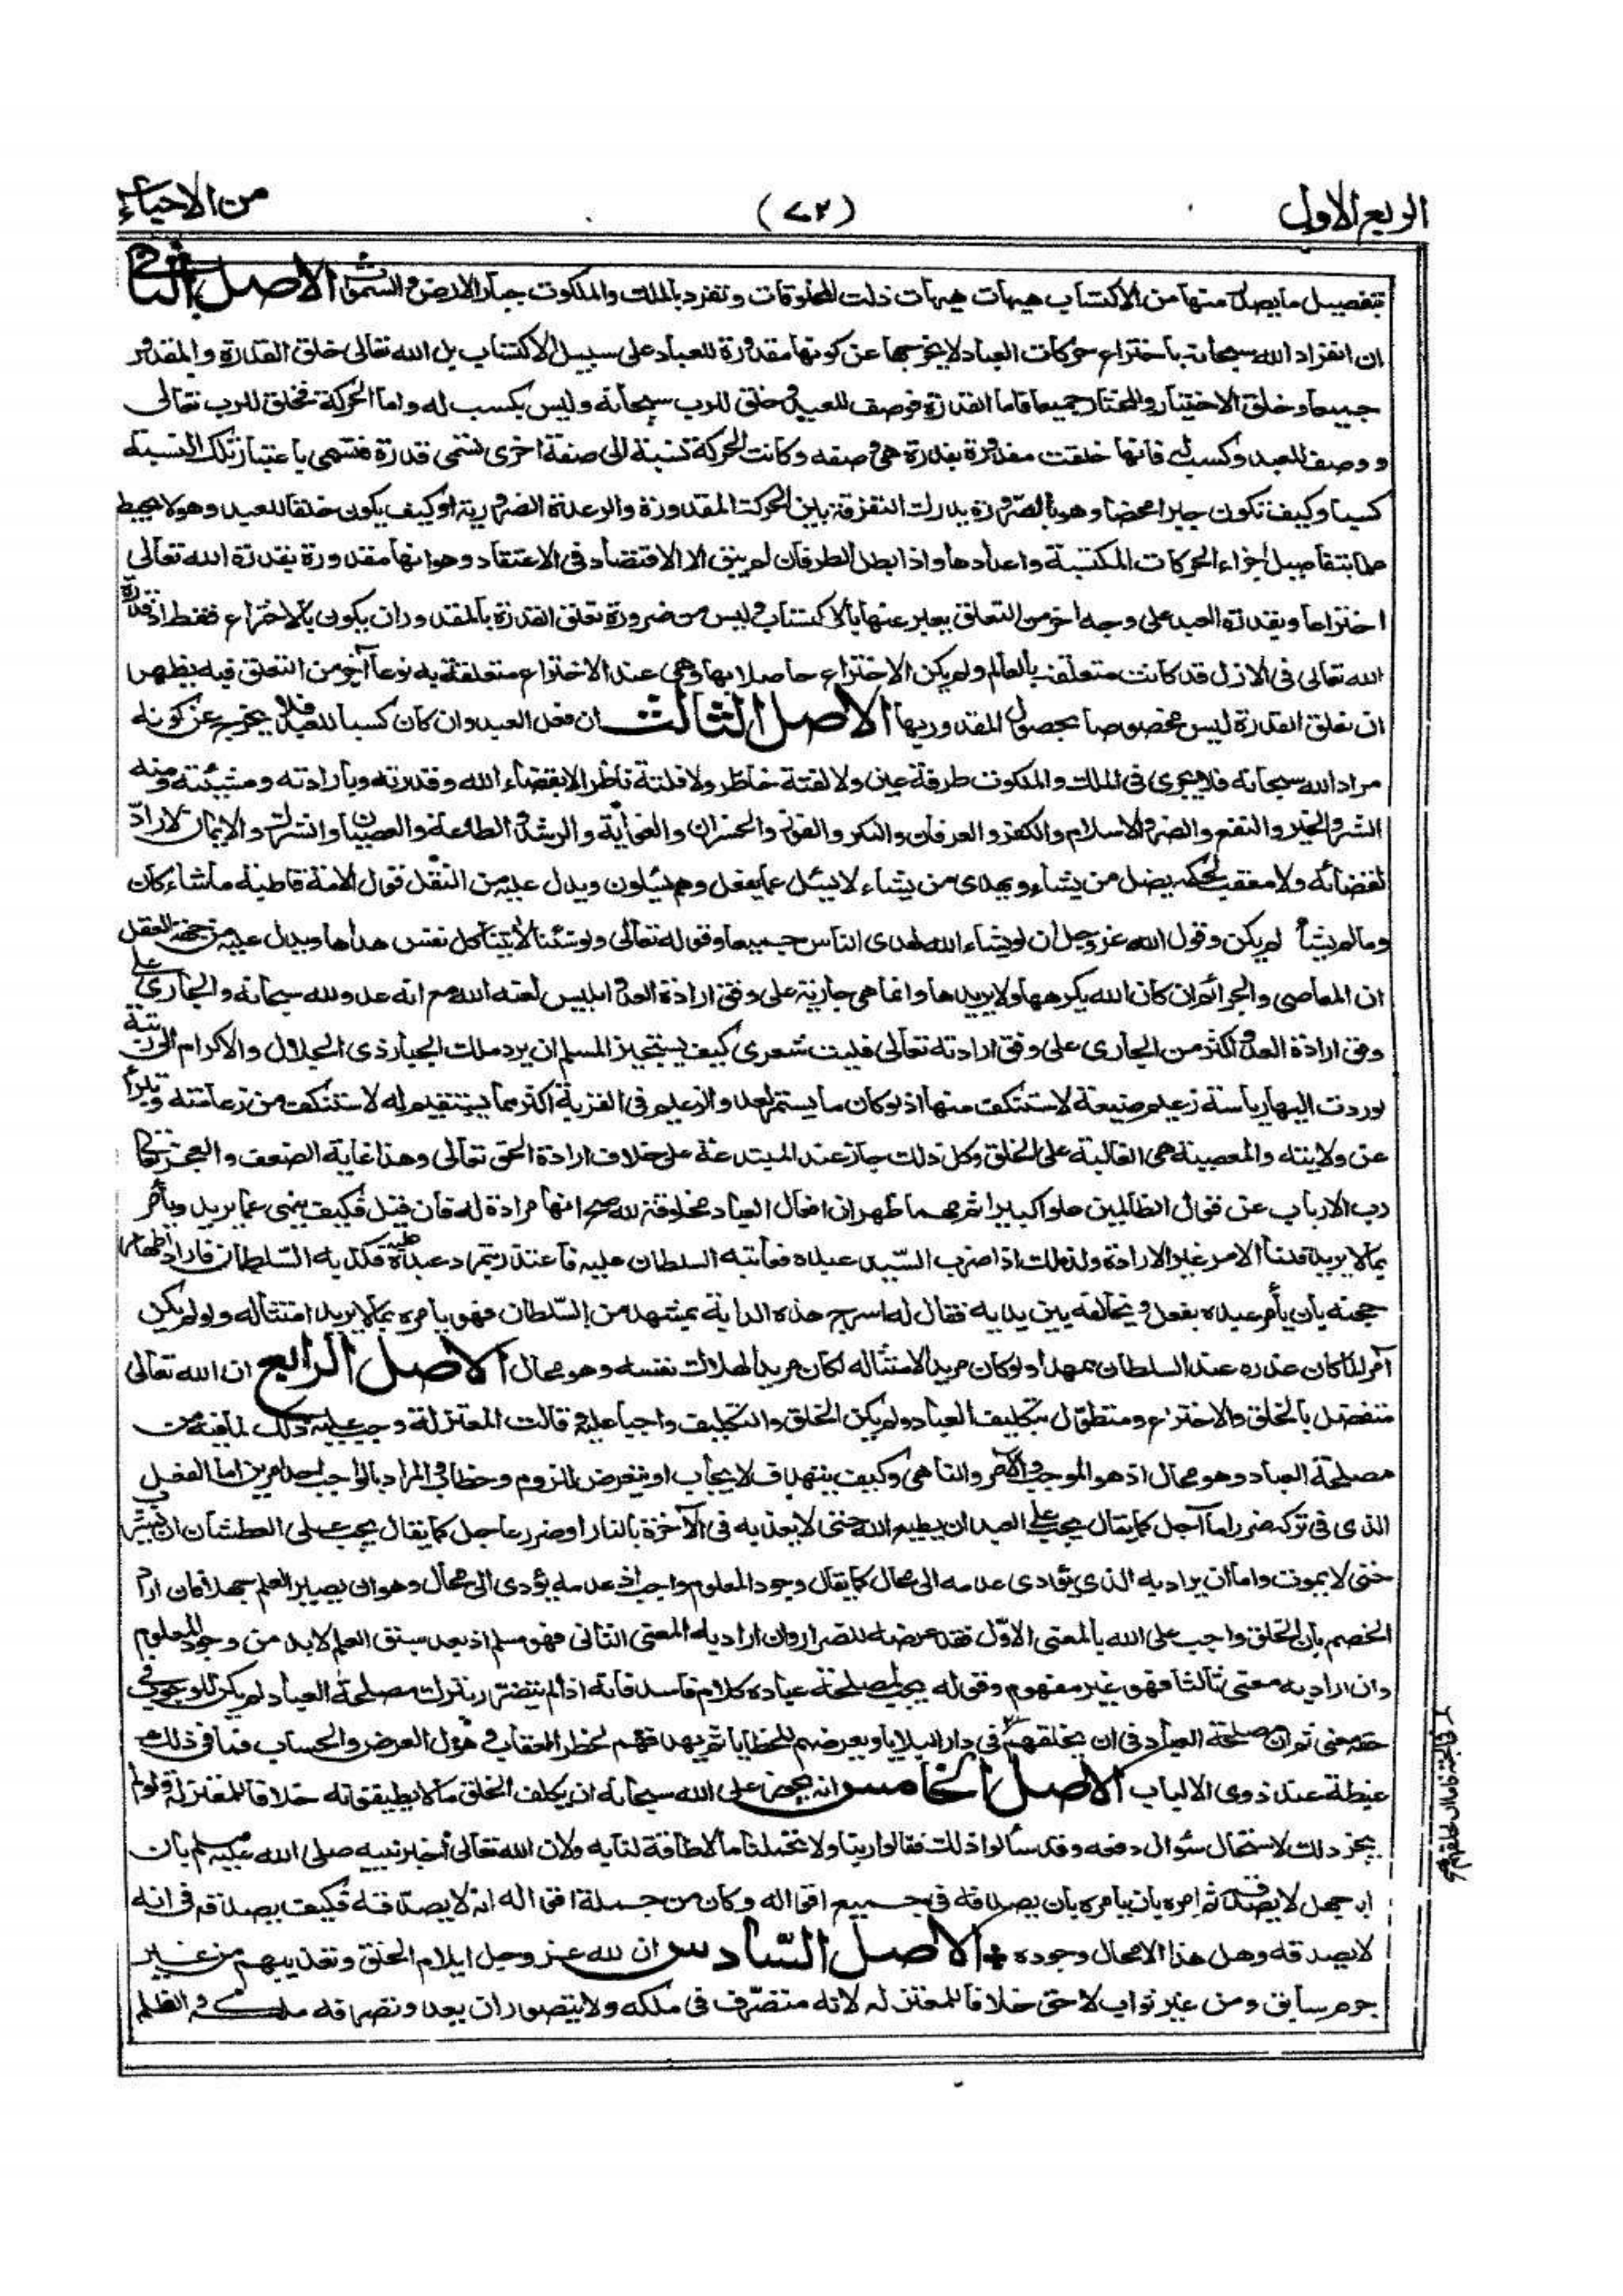 الربع الاول
(٧٢)
من الاحياء
بتفصيل ما يصدر منها من الاكتساب هيهات هيهات ذلت المخلوقات وتفرد بالملك والملكوت جبار الارض والسموات الاصل الثانى
ان انفراد الله سبحانه باختراع حركات العباد لا يخرجها عن كونها مقدورة للعباد على سبيل الاكتساب بل الله تعالى خلق القدرة والمقدور
جميعا وخلق الاختيار والمختار جميعا فاما القدرة فوصف للعبد وخلق للرب سبحانه وليس بكسب له واما الحركة فخلق للرب تعالى
ووصف للعبد وكسب له فانها خلقت مقدورة بقدرة هى وصفه وكانت للحركة نسبة الى صفة اخرى تسمى قدرة فتسمى باعتبار تلك النسبة
كسبا وكيف تكون جبرا محضا وهو بالضرورة يدرك التفرقة بين الحركة المقدورة والرعدة الضرورية او كيف يكون خلقا للعبد وهو لا يحيط
علما بتفاصيل اجزاء الحركات المكتسبة واعدادها واذا بطل الطرفان لم يبق الا الاقتصاد فى الاعتقاد وهو انها مقدورة بقدرة الله تعالى
اختراعا وبقدرة العبد على وجه اخر من التعلق يعبر عنها بالاكتساب وليس من ضرورة تعلق القدرة بالمقدور ان يكون بالاختراع فقط اذ قدرة
الله تعالى فى الازل قد كانت متعلقة بالعالم ولم يكن الاختراع حاصلا بها وهى عند الاختراع متعلقة به نوعا آخر من التعلق فبه يظهر
ان تعلق القدرة ليس مخصوصا بحصول المقدور بها الاصل الثالث ان فعل العبد وان كان كسبا للعبد فلا يخرج عن كونه
مراد الله سبحانه فلا يجرى فى الملك والملكوت طرفة عين ولا لفتة خاطر ولا فلتة ناظر الا بقضاء الله وقدرته وبارادته ومشيئته ومنه
الشر والخير والنفع والضر والاسلام والكفر والعرفان والنكر والفوز والخسران والغواية والرشد والطاعة والعصيان والشرك والايمان لا راد
لقضائه ولا معقب لحكمه يضل من يشاء ويهدى من يشاء لا يسئل عما يفعل وهم يسئلون ويدل عليه من النقل قول الامة قاطبة ما شاء كان
وما لم يشأ لم يكن وقول الله عز وجل ان لو يشاء الله لهدى الناس جميعا وقوله تعالى ولو شئنا لآتينا كل نفس هداها ويدل عليه من جهة العقل
ان المعاصى والجرائم ان كان الله يكرهها ولا يريدها وانما هى جارية على وفق ارادة العدو ابليس لعنه الله مع انه عدو لله سبحانه والجارى على
وفق ارادة العدو اكثر من الجارى على وفق ارادته تعالى فليت شعرى كيف يستجيز المسلم ان يرد ملك الجبار ذى الجلال والاكرام الى رتبة
لو ردت اليها رياسة زعيم ضيعة لاستنكف منها اذ لو كان ما يستمر لعدو الزعيم فى القرية اكثر مما يستقيم له لاستنكف من زعامته وتبرأ
عن ولايته والمعصية هى الغالبة على الخلق وكل ذلك جار عند المبتدعة على خلاف ارادة الحق تعالى وهذا غاية الضعف والعجز تعالى
رب الارباب عن قول الظالمين علوا كبيرا ثم مهما ظهر ان افعال العباد مخلوقة لله صح انها مرادة له فان قيل فكيف ينهى عما يريد ويأمر
بما لا يريد قلنا الامر غير الارادة ولذلك اذا ضرب السيد عبده فعاتبه السلطان عليه فاعتذر بتمرد عبده عليه فكذبه السلطان فاراد اظهار
حجته بان يأمر عبده بفعل ويخالفه بين يديه فقال له اسرج هذه الدابة بمشهد من السلطان فهو يأمره بما لا يريد امتثاله ولو لم يكن
آمرا لما كان عذره عند السلطان ممهدا ولو كان مريدا لامتثاله لكان مريدا لهلاك نفسه وهو محال الاصل الرابع ان الله تعالى
متفضل بالخلق والاختراع ومتطول بتكليف العباد ولم يكن الخلق والتكليف واجبا عليه وقالت المعتزلة وجب عليه ذلك لما فيه من
مصلحة العباد وهو محال اذ هو الموجب والآمر والناهى وكيف يتهدف لايجاب او يتعرض للزوم وخطاب والمراد بالواجب احد امرين اما الفعل
الذى فى تركه ضرر اما آجل كما يقال يجب على العبد ان يطيع الله حتى لا يعذبه فى الآخرة بالنار او ضرر عاجل كما يقال يجب على العطشان ان يشرب
حتى لا يموت واما ان يراد به الذى يؤدى عدمه الى محال كما يقال وجود المعلوم واجب اذ عدمه يؤدى الى محال وهو ان يصير العلم جهلا فان اراد
الخصم بان الخلق واجب على الله بالمعنى الاول فقد عرضه للضرار وان اراد به المعنى الثانى فهو مسلم اذ بعد سبق العلم لا بد من وجود المعلوم
وان اراد به معنى ثالثا فهو غير مفهوم وقوله يجب لمصلحة عباده كلام فاسد فانه اذا لم يتضرر بترك مصلحة العباد لم يكن للوجوب فى
حقه معنى ثم ان مصلحة العباد فى ان يخلقهم فى دار البلايا ويعرضهم للخطايا ثم يهدفهم لخطر العقاب وهول العرض والحساب فما فى ذلك
غبطة عند ذوى الالباب الاصل الخامس انه يجوز على الله سبحانه ان يكلف الخلق ما لا يطيقونه خلافا للمعتزلة ولو لم
يجز ذلك لاستحال سؤال دفعه وقد سألوا ذلك فقالوا ربنا ولا تحملنا ما لا طاقة لنا به ولان الله تعالى أخبر نبيه صلى الله عليه وسلم بان
ابا جهل لا يصدقه ثم امره بان يامره بان يصدقه فى جميع اقواله وكان من جملة اقواله انه لا يصدقه فكيف يصدقه فى انه
لا يصدقه وهل هذا الا محال وجوده ✦ الاصل السادس ان لله عز وجل ايلام الخلق وتعذيبهم من غير
جرم سابق ومن غير ثواب لاحق خلافا للمعتزله لانه متصرف فى ملكه ولا يتصور ان يعدو تصرفه ملكه والظلم